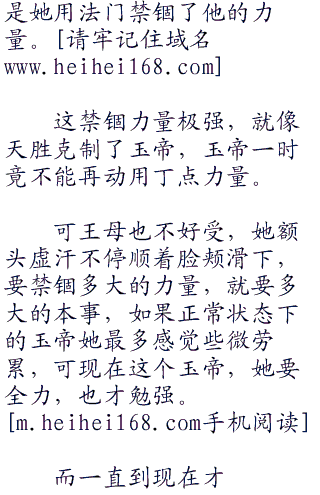 是她用法门禁锢了他的力
量。[请牢记住域名
www.heihei168.com]
这禁锢力量极强，就像
天胜克制了玉帝，玉帝一时
竟不能再动用丁点力量。
可王母也不好受，她额
头虚汗不停顺着脸颊滑下，
要禁锢多大的力量，就要多
大的本事，如果正常状态下
的玉帝她最多感觉些微劳
累，可现在这个玉帝，她要
全力，也才勉强。
[m.heihei168.com手机阅读]
而一直到现在才